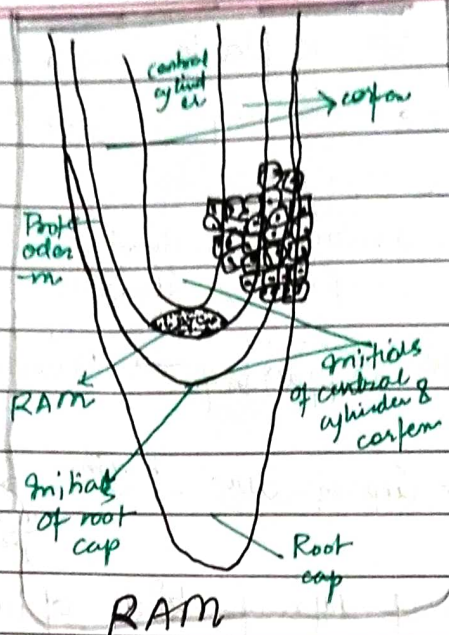 central
cylind
er
cortex
Prot
oder
m
RAM
Initials
of central
cylinder &
cortex
Initials
of root
cap
Root
cap
RAM